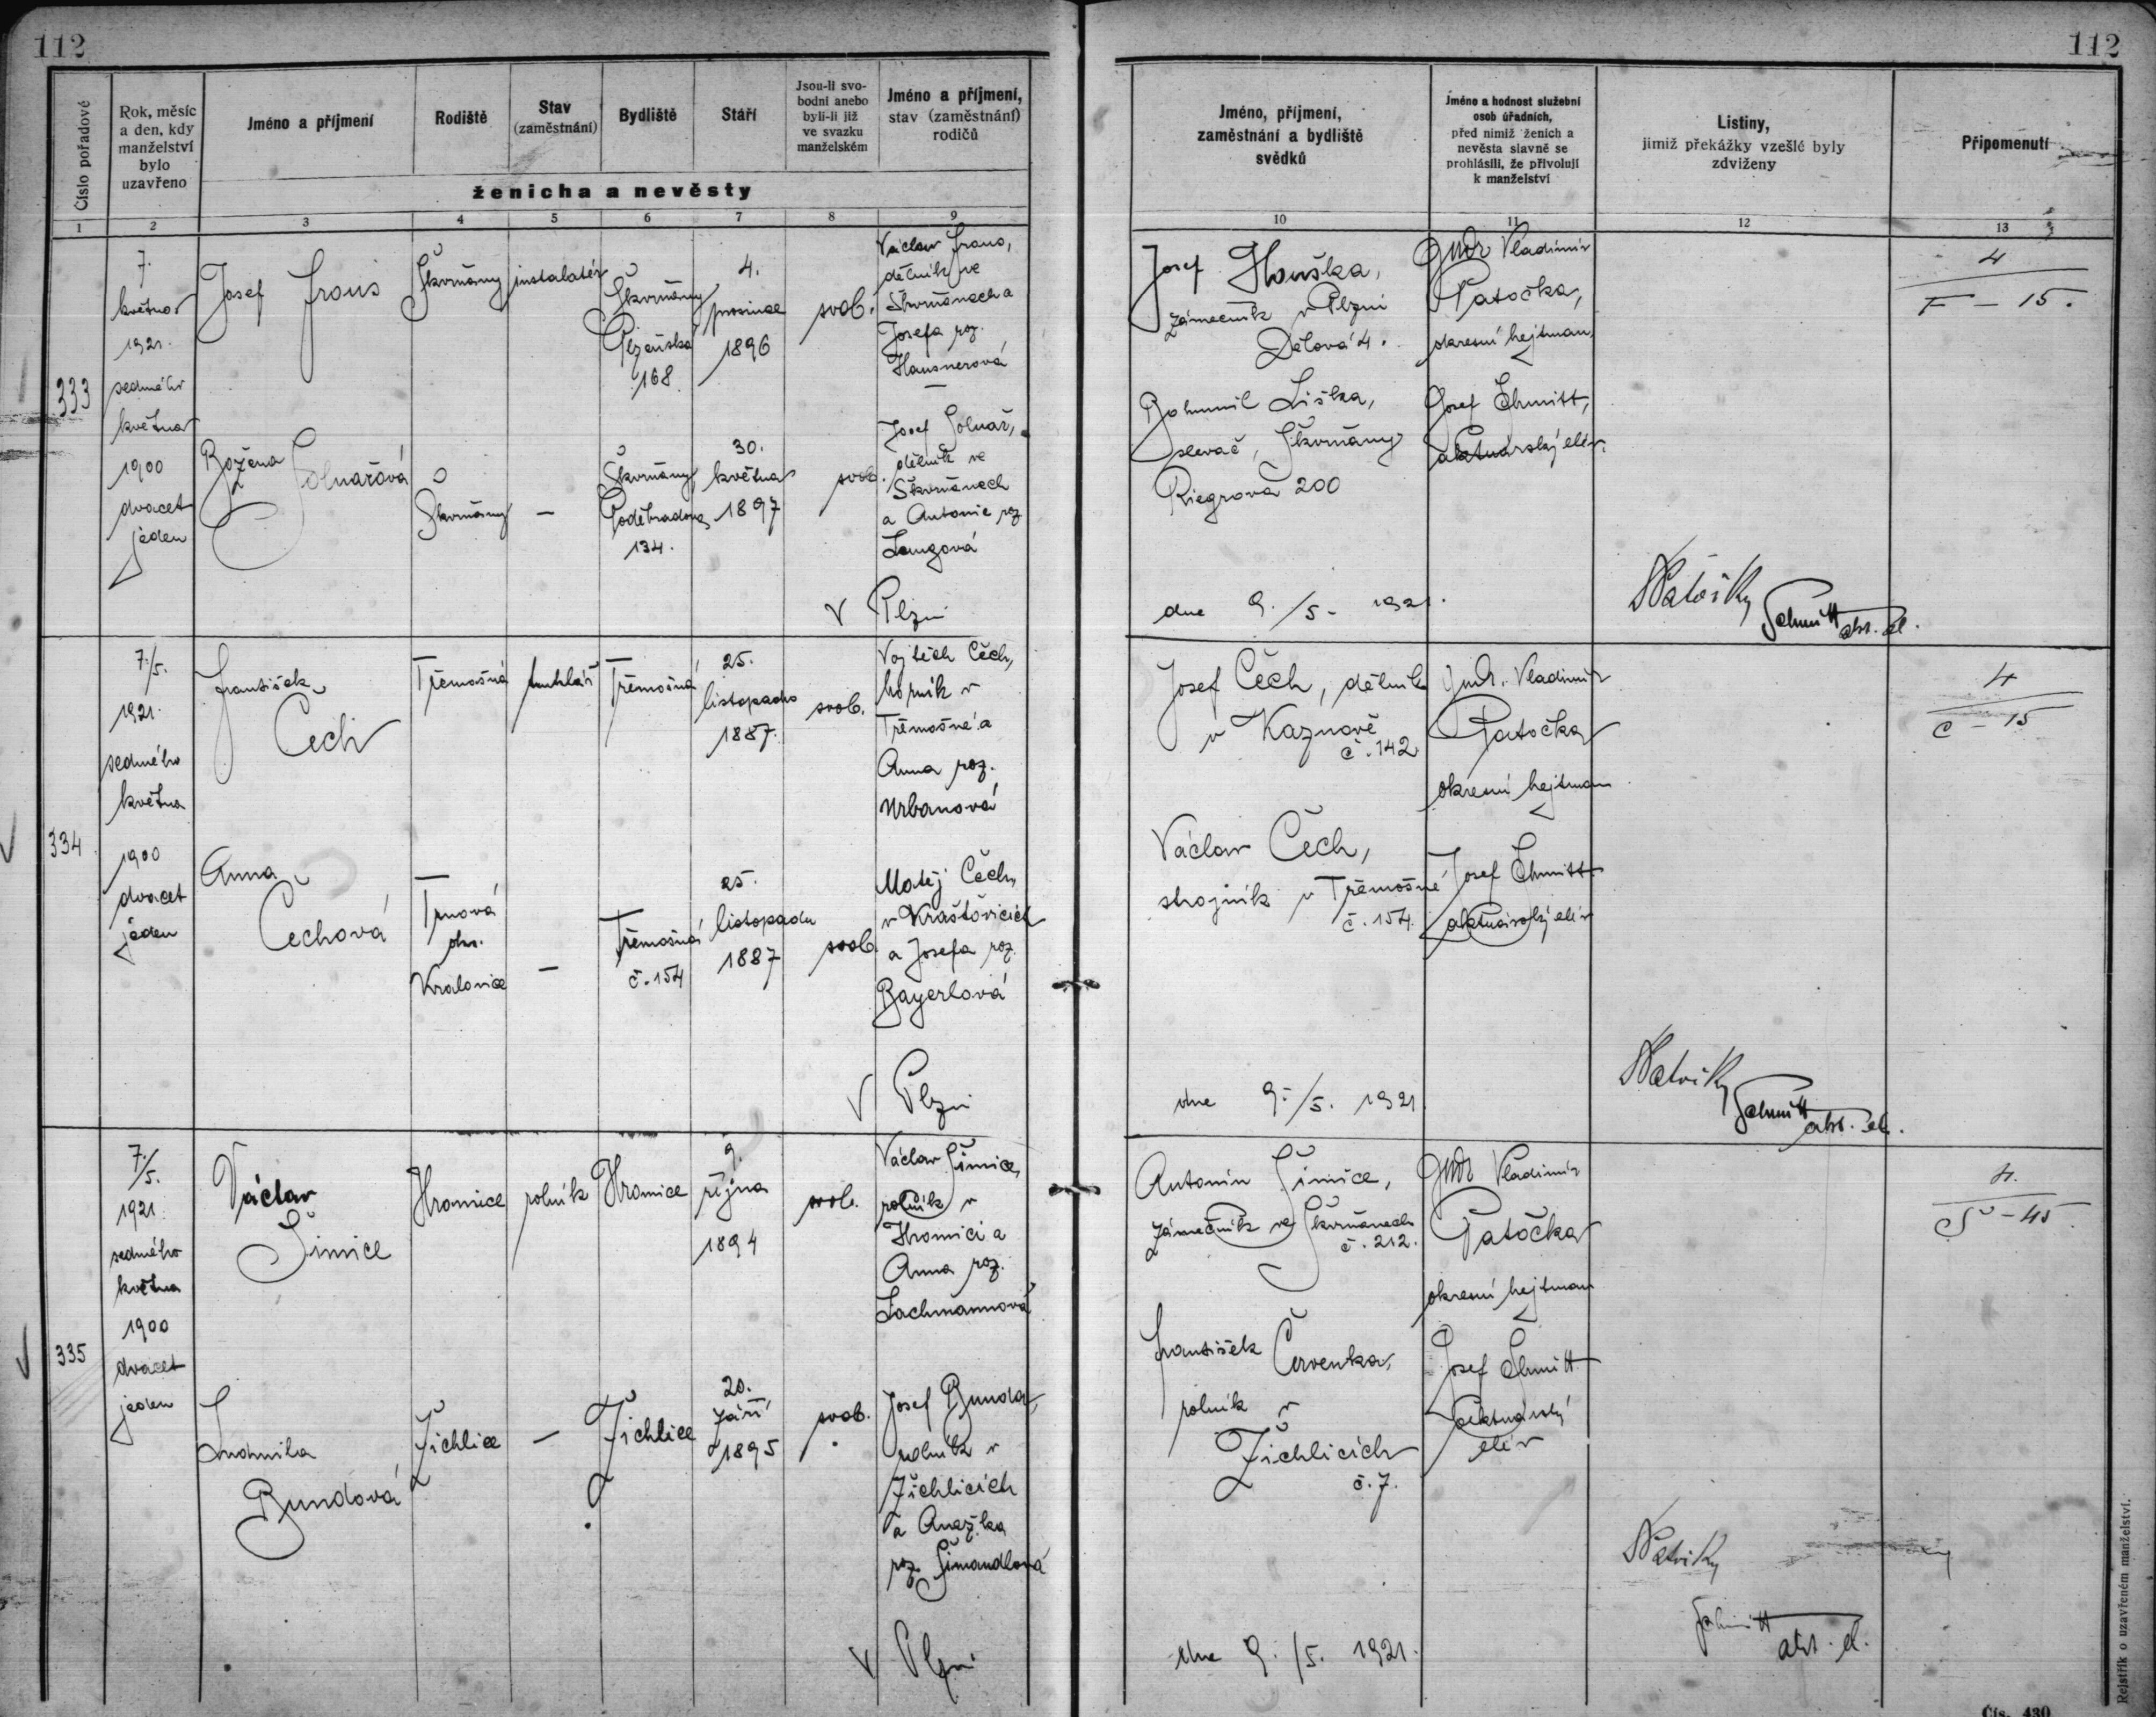 112
112
Číslo pořadové
Rok, měsíc
a den, kdy
manželství
bylo
uzavřeno
Jméno a příjmení
Rodiště
Stav
(zaměstnání)
Bydliště
Stáří
Jsou-li svo-
bodni anebo
byli-li již
ve svazku
manželském
Jméno a příjmení,
stav (zaměstnání)
rodičů
ženicha a nevěsty
1 2 3 4 5 6 7 8 9
Jméno, příjmení,
zaměstnání a bydliště
svědků
Jméno a hodnost služební
osob úřadních,
před nimiž ženich a
nevěsta slavně se
prohlásili, že přivolují
k manželství
Listiny,
jimiž překážky vzešlé byly
zdviženy
Připomenutí
10 11 12 13
333
7.
května
1921.
sedmého
května
1900
dvacet
jeden
Josef Frous
Škvrňany
instalatér
Škvrňany
Plzeňská
168.
4.
prosince
1896
svob.
Václav Frous,
dělník ve
Škvrňanech a
Josefa roz.
Hausnerová
Božena
Solnařová
Škvrňany
—
Škvrňany
Poděbradova
134.
30.
května
1897
svob.
Josef Solnař,
dělník ve
Škvrňanech
a Antonie roz
Langová
V Plzni
Josef Houška,
zámečník v Plzni
Dělová 4.
Bohumil Liška,
slevač, Škvrňany
Riegrova 200
JUDr Vladimír
Patočka,
okresní hejtman
Josef Schmitt,
aktuárský elév.
4
F – 15.
dne 9./5. 1921.
Schmitt
akt. el.
334
7./5.
1921.
sedmého
května
1900
dvacet
jeden
František
Čech
Třemošná
truhlář
Třemošná
25.
listopadu
1887.
svob.
Vojtěch Čech,
horník v
Třemošné a
Anna roz.
Urbanová
Anna
Čechová
Trnová
okr.
Kralovice
—
Třemošná
č. 154
25.
listopadu
1887
svob.
Matěj Čech,
v Kraštovicích
a Josefa roz.
Bayerlová
V Plzni
Josef Čech, dělník
v Kaznově
č. 142.
Václav Čech,
strojník v Třemošné
č. 154.
JUDr. Vladimír
Patočka
okresní hejtman
Josef Schmitt
aktuárský elév
4
C – 15
dne 9./5. 1921
Schmitt
akt. el.
335
7./5.
1921.
sedmého
května
1900
dvacet
jeden
Václav
Šimice
Hromice
rolník
Hromice
9.
října
1894
svob.
Václav Šimice,
rolník v
Hromici a
Anna roz.
Lachmannová
Ludmila
Bundová
Žichlice
—
Žichlice
20.
září
1895
svob.
Josef Bunda,
rolník v
Žichlicích
a Anežka
roz. Šimandlová
V Plzni
Antonín Šimice,
zámečník ve Škvrňanech
č. 212.
František Červenka,
rolník v
Žichlicích
č. 7.
JUDr Vladimír
Patočka
okresní hejtman
Josef Schmitt
aktuárský
elév
4.
Š – 45
dne 9./5. 1921.
Schmitt
akt. el.
Rejstřík o uzavřeném manželství.
Čís. 430